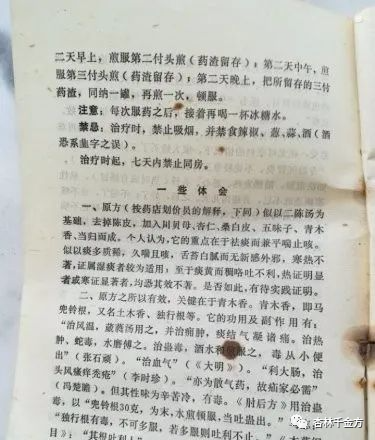 二天早上，煎服第二付头煎（药渣留存）；第二天中午，煎
服第三付头煎（药渣留存）；第二天晚上，把所留存的三付
药渣，同纳一罐，再煎一次，顿服。
注意：每次服药之后，接着再喝一杯冰糖水。
禁忌：治疗时，禁止吸烟，并禁食辣椒、葱、蒜、酒（酒
恐系韭字之误）。
治疗时起，七天内禁止同房。
一些体会
一、原方（按药店划价员的解释，下同）似以二陈汤为
基础，去掉陈皮，加入川贝母、杏仁、桑白皮、五味子、青木
香、当归而成。个人认为，它的重点在于祛痰而兼平喘止咳。
似以痰多质稀，久喘且咳，舌苔白腻而无新感外邪，寒热不
著，证属湿痰者较为适用；至于痰黄而稠咯吐不利，热证明显
或寒证显著者，均恐其效不著。是否如此，有待实践证明。
二、原方之所以有效，关键在于青木香。青木香，即马
兜铃根，又名土木香、独行根等。它的功用及副作用有：
“治风温，葳蕤汤用之，并治痈肿，痰结气凝诸痛。治热
肿、蛇毒，水磨傅之。治蛊毒，酒水和煎服之，毒从小便
出”（张石顽）。“治血气”（《大明》）。“利大肠，治
头风瘙痒秃疮”（李时珍）。“亦为散气药，故疝家必需”
（冯楚瞻）。但其性味为辛苦冷，有毒。《肘后方》用治蛊
毒，以“兜铃根30克，为末，水煎顿服，当吐蛊出。”
“独行根有毒，不可多服，若多服则吐利不止。”